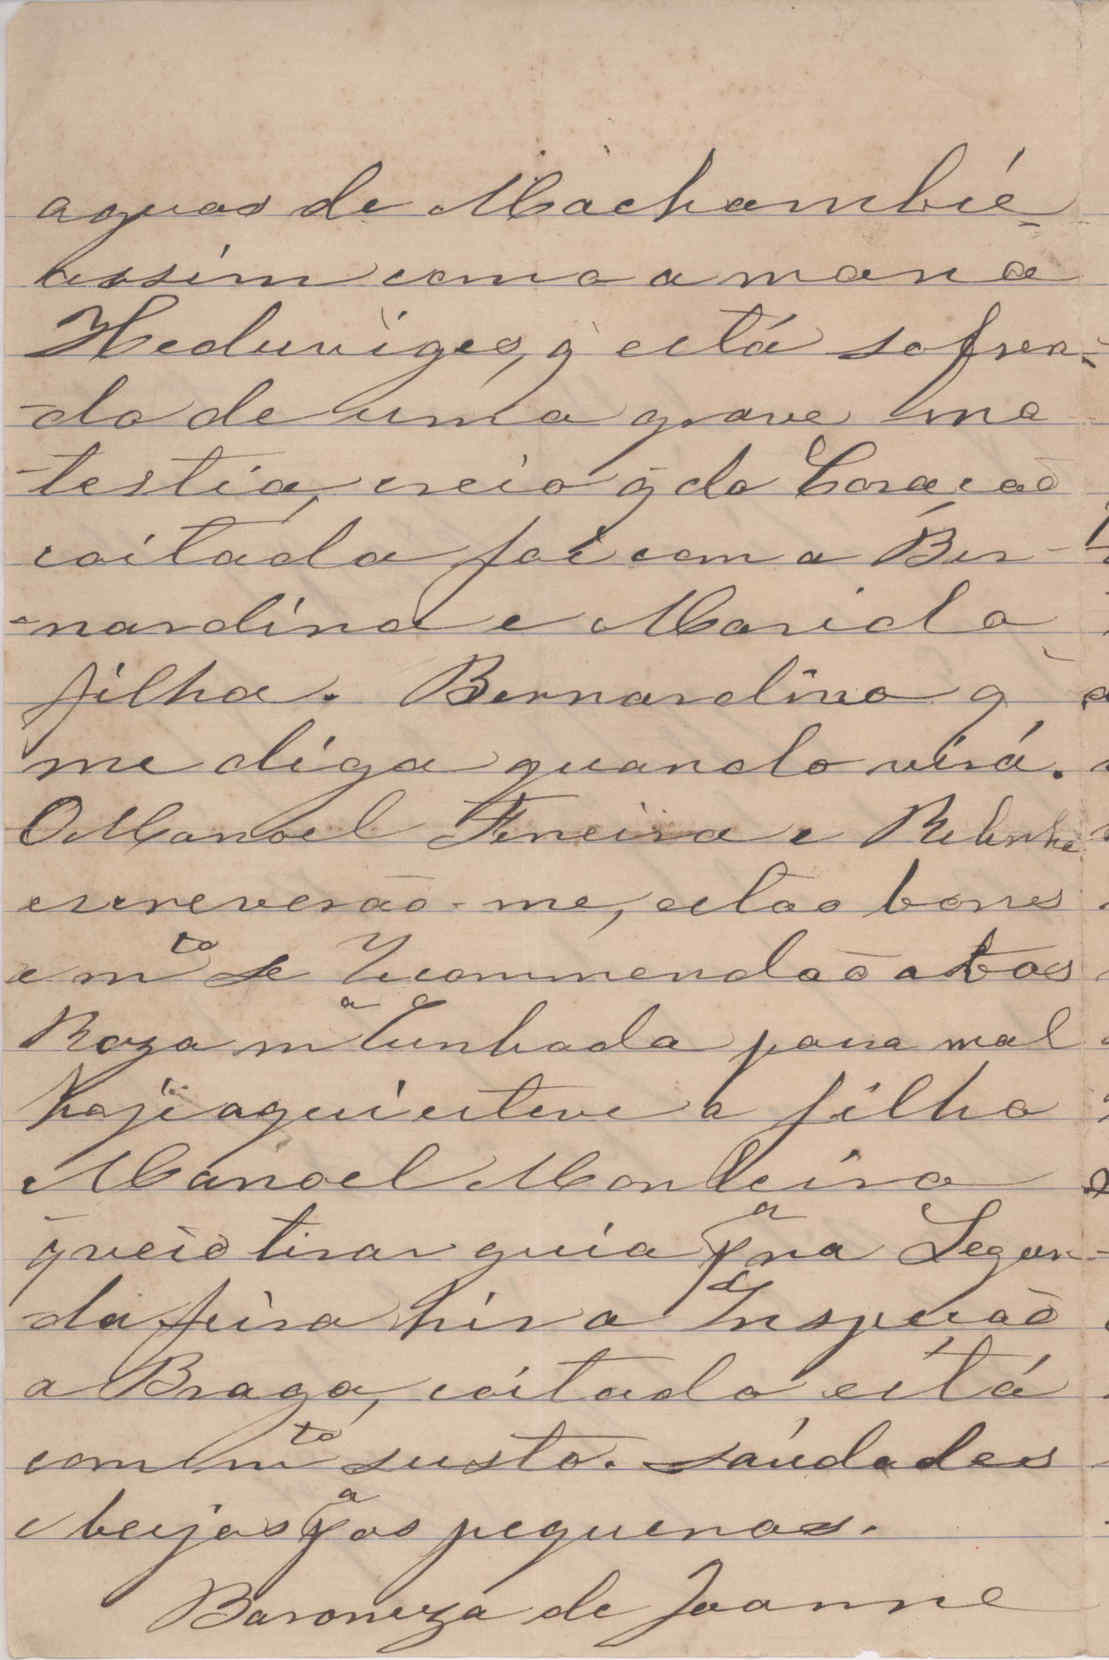 aguas de Machambié
assim como a mana
Heduviges, q̃ está sofren-
-do de uma grave mo
-lestia, creio q̃ do Coração
coitada foi com a Ber-
-nardina e Maria da
filha. Bernardino q̃
me diga quando virá.
O Manoel Ferreira e
escreverão-me, estão bons
e m.to se recommendão a tos
Roza m.a Cunhada passa mal
hoje aqui esteve o filho
Manoel Monteiro
q̃ veio tirar guia p.a na Segun-
da feira hir a Inspecão
a Braga, coitado está
com m.to susto. saúdades
e beijos p.a os pequenos.
Baroneza de Joanne